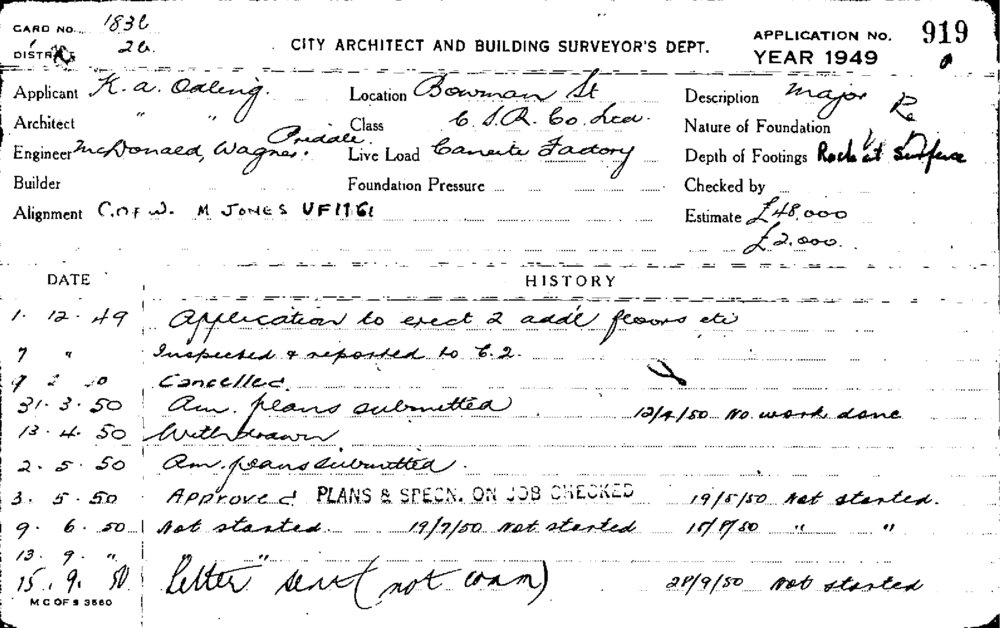 CARD NO. 1836
DISTRICT 26.
CITY ARCHITECT AND BUILDING SURVEYOR'S DEPT.
APPLICATION NO. 919
YEAR 1949
Applicant K. A. Odling. Location Bowman St Description Major
Architect " " Class C.S.R. Co. Ltd. Nature of Foundation
Engineer McDonald, Wagner. Priddle Live Load Caneite Factory Depth of Footings Rock at surface
Builder Foundation Pressure Checked by
Alignment C. of W. M JONES UF1761 Estimate £48,000
£2,000.
DATE HISTORY
1. 12. 49 Application to erect 2 add'l floors etc
7 " Inspected & reported to C.2.
9 2 50 Cancelled.
31. 3. 50 Am. plans submitted 12/4/50 No work done
13. 4. 50 Withdrawn
2. 5. 50 Am. plans submitted.
3. 5. 50 Approved PLANS & SPECN. ON JOB CHECKED 19/5/50 Not started.
9. 6. 50 Not started. 19/7/50 Not started 15/8/50 " "
13. 9. " "
15. 9. 50 Letter sent (not comm) 28/9/50 Not started
M C OF S 3560